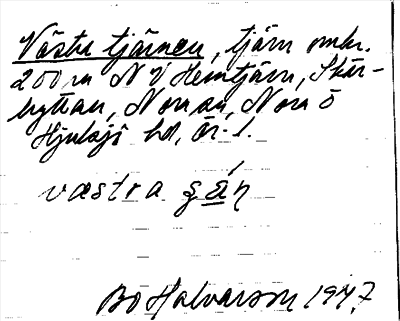 Västra tjärnen, tjärn omkr.
200 m N V Hemtjärn, Skär-
hyttan, Norrån, Nora ö
Hjulsjö hd, Ör. l.
västra ʂä́ɳ
Bo Halvarson 1947